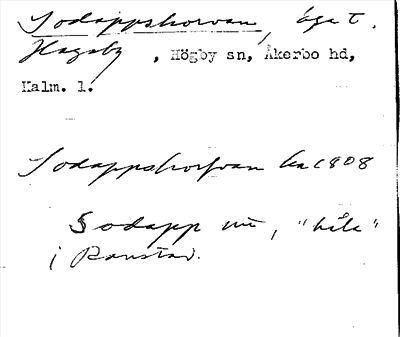 Sodappshorvan, äga t.
Hagaby, Högby sn, Åkerbo hd,
Kalm. l.
Sodappshorfvan ka 1808
Sodapp m, "håla"
i Ramstad.